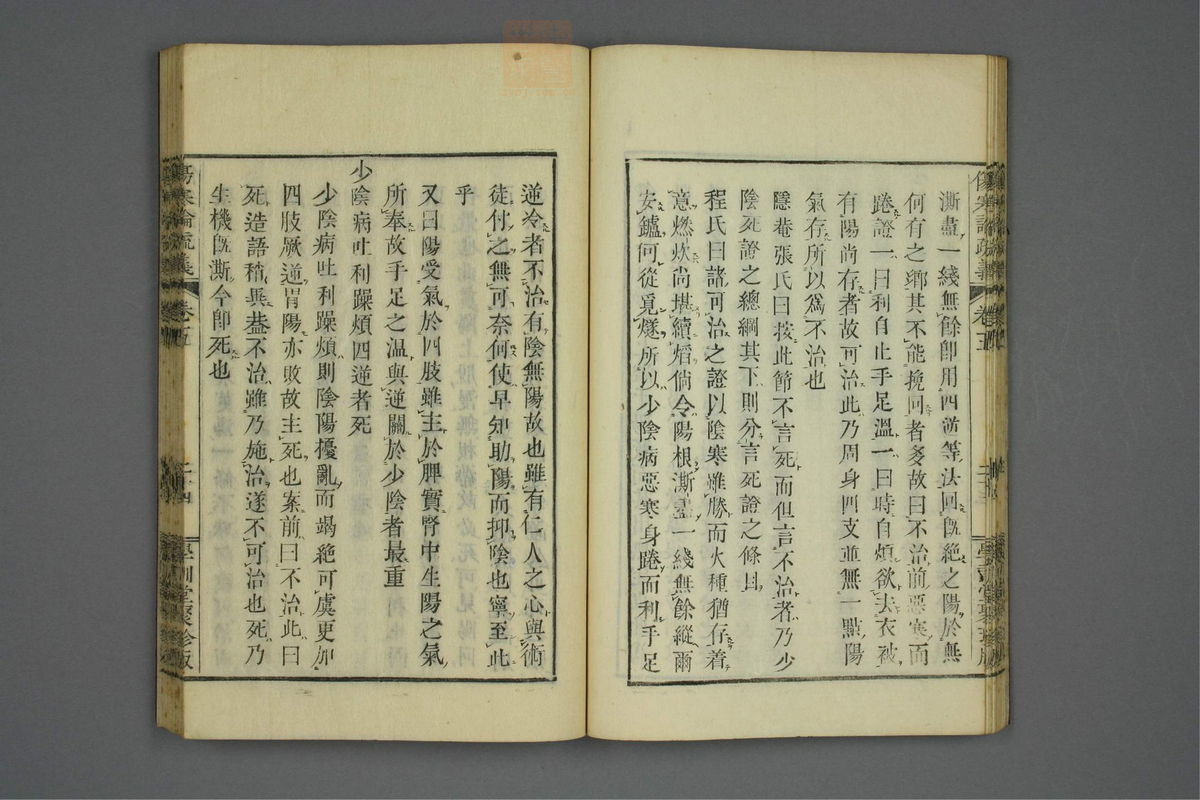 澌盡一綫無餘卽用四逆等法回旣絶之陽於無
何有之鄕其不能挽回者多故曰不治前惡寒而
踡證一曰利自止手足溫一曰時自煩欲去衣被
有陽尚存者故可治此乃周身四支並無一點陽
氣存所以爲不治也
隱菴張氏曰按此節不言死而但言不治者乃少
陰死證之總綱其下則分言死證之條目
程氏曰諸可治之證以陰寒雖勝而火種猶存着
意燃炊尚堪續熖倘令陽根澌盡一綫無餘縱爾
安鑪何從覓燧所以少陰病惡寒身踡而利手足
逆冷者不治有陰無陽故也雖有仁人之心與術
徒付之無可奈何使早知助陽而抑陰也寧至此
乎
又曰陽受氣於四肢雖主於脾實腎中生陽之氣
所奉故手足之温與逆關於少陰者最重
少陰病吐利躁煩四逆者死
少陰病吐利躁煩則陰陽擾亂而竭絶可虞更加
四肢厥逆胃陽亦敗故主死也案前曰不治此曰
死造語稍異葢不治雖乃施治遂不可治也死乃
生機旣澌今卽死也
傷寒論疏義 卷五 二十四 學訓堂聚珍版